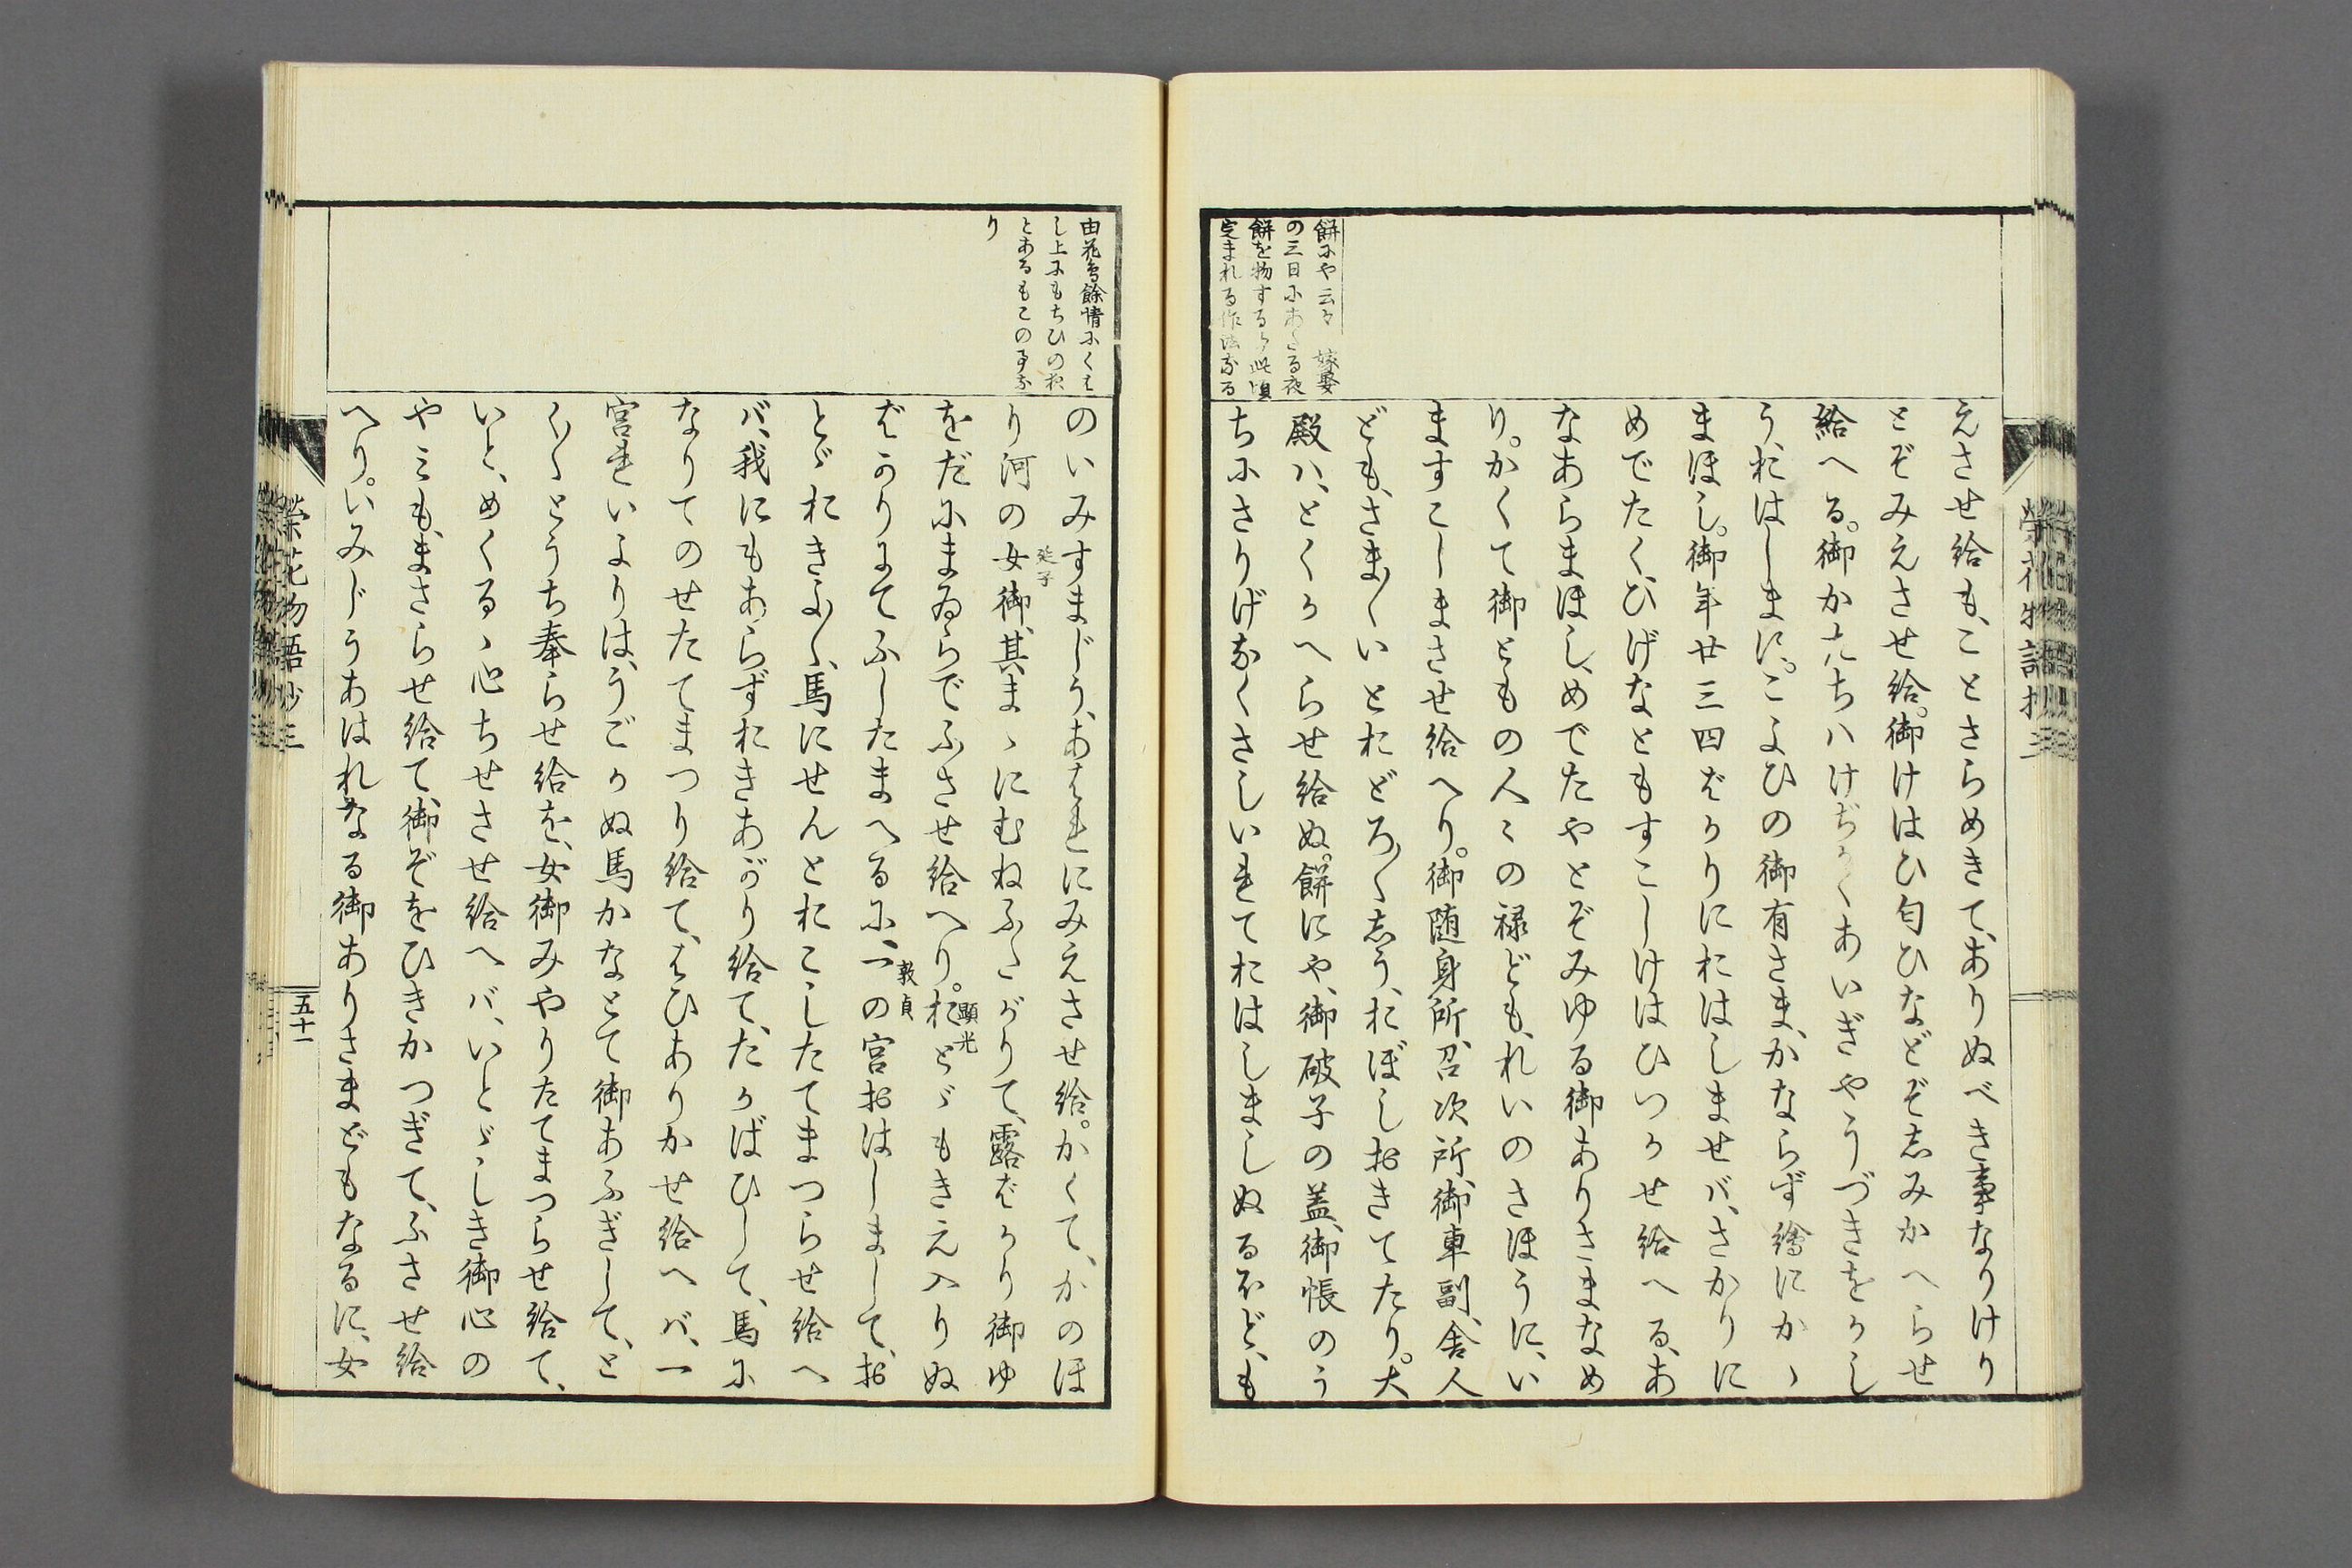 えさせ給も、ことさらめきて、ありぬべき事なりけり
とぞみえさせ給。御けはひ匂ひなどぞしみかへらせ
給へる。御かたちハけぢかくあいぎやうづきをかし
う、おはしまに。こよひの御有さま、かならず繪にかゝ
まほし。御年廿三四ばかりにおはしませバ、さかりに
めでたく、ひげなどもすこしけはひつかせ給へる、あ
なあらまほし、めでたやとぞみゆる御ありさまなめ
り。かくて御ともの人々の禄ども、れいのさほうに、い
ますこしまさせ給へり。御随身所、召次所、御車副、舎人
ども、さま〴〵いとおどろ〳〵しう、おぼしおきてたり。大
殿ハ、とくかへらせ給ぬ。餅にや、御破子の蓋、御帳のう
ちにさりげなくさしいれておはしましぬるほども
餅にや云々 嫁娶
の三日にあたる夜
餅を物するか此頃
定まれる作法なる
由花鳥餘情にくは
し上にもちひの夜
とあるもこの事な
り
のいみすまじう、あはれにみえさせ給。かくて、かのほ
り河の女御、其まゝにむねふたがりて、露ばかり御ゆ
延子
をだにまゐらでふさせ給へり。おとゞもきえ入りぬ
顕光
ばかりにてふしたまへるに、一の宮おはしまして、お
敦貞
とゞおきよ〳〵、馬にせんとおこしたてまつらせ給へ
バ、我にもあらずおきあがり給て、たかばひして、馬に
なりてのせたてまつり給て、はひありかせ給へバ、一
宮れいよりは、うごかぬ馬かなとて御あふぎして、と
く〳〵とうち奉らせ給を、女御みやりたてまつらせ給て、
いと、めくるゝ心ちせさせ給へバ、いとゞしき御心の
やミも、まさらせ給て、御ぞをひきかつぎて、ふさせ給
へり。いみじうあはれなる御ありさまどもなるに、女
榮花物語抄三
五十一